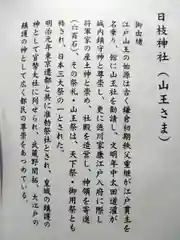 日枝神社（山王さま）
御由緒
江戸山王の始源は古く鎌倉初期秩父重継が江戸貫主を
名乗り、館に山王社を勧請し、文明年中太田道灌が
城内鎮守神と尊崇し、更に徳川家康江戸入府に際し
将軍家の産土神と崇め、社殿を造営し、神領を寄進
（六百石）その祭礼・山王祭は、天下祭・御用祭とも
称され、日本三大祭の一とされた。
明治元年東京遷都と共に准勅祭社とされ、皇城の鎮護の
神として官幣大社に列せられ、武蔵野開拓、大江戸の
鎮護の神として広く都民の尊崇をあつめている。